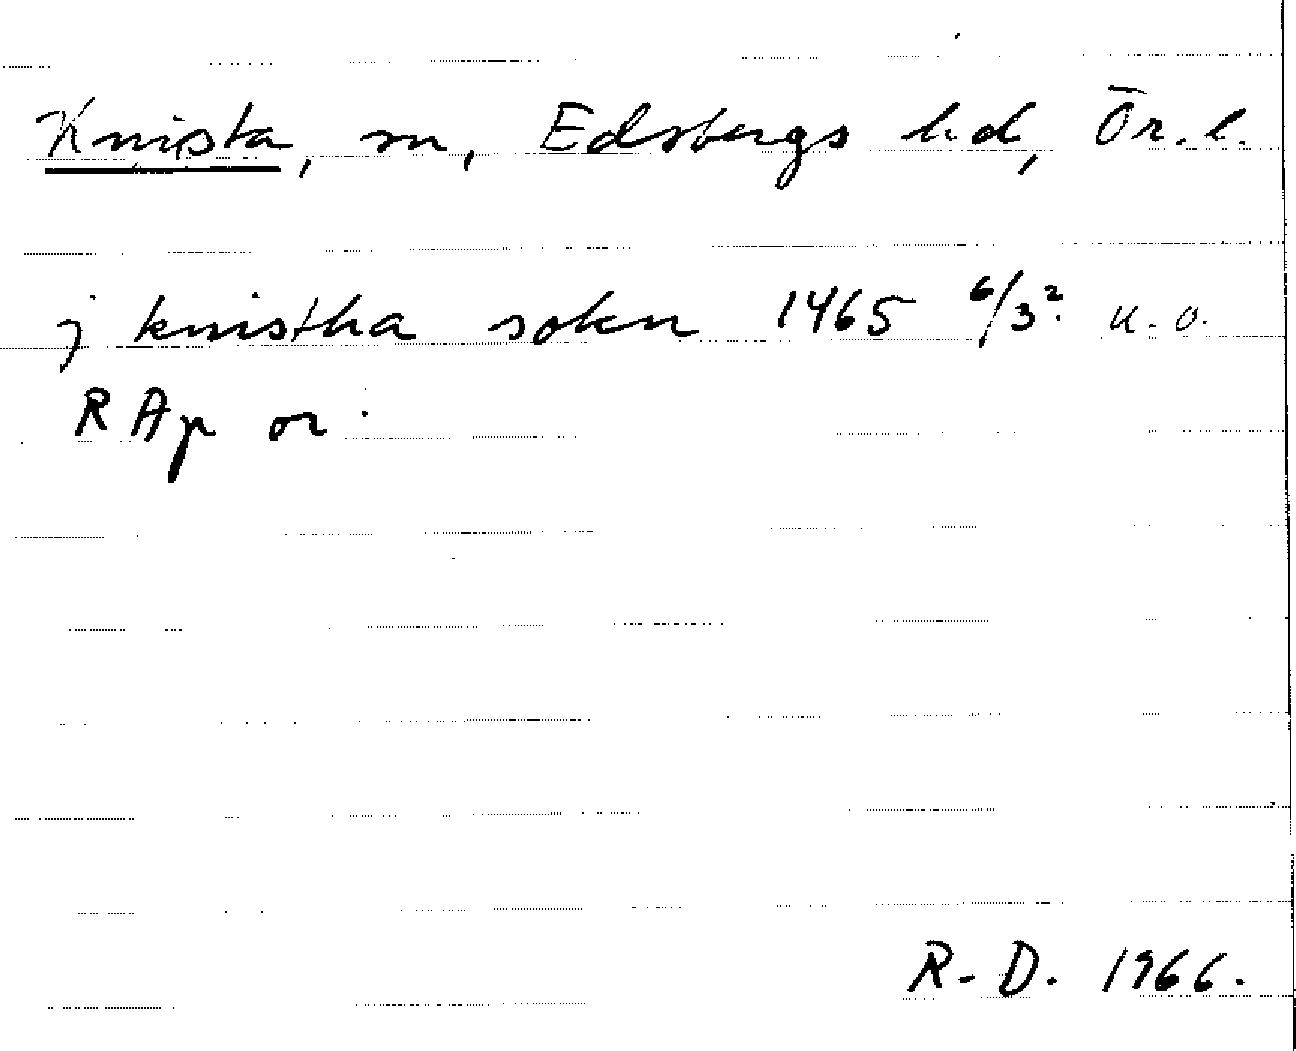 Knista, sn, Edsbergs hd, Ör. l.
j knistha sokn 1465 6/3? u. o.
RAp or.
R-D. 1966.